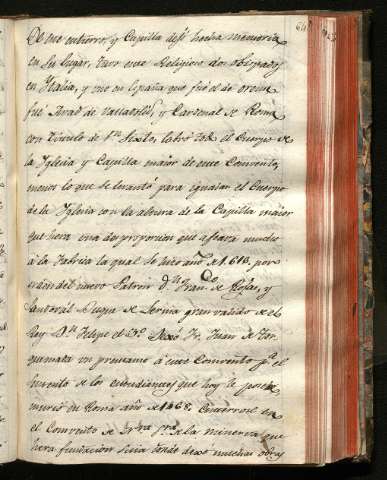 De cuio entierro, y Capilla dejé hecha memoria
en su lugar, tuvo este Religioso dos obispados
en Italia, y uno en España que fué el de Orense
fué Abad de Valladolid, y Cardenal de Roma
con titulo de Sn. Sixto, labró todo el Cuerpo de
la Iglesia y Capilla maior de este Convento,
menos lo que se levantó para igualar el Cuerpo
de la Iglesia con la altura de la Capilla maior
que hera una desproporcion que afeava mucho
á la fabrica la qual se hizo año de 1613, por
del nuevo Patron Dn. Franco. de Rojas, y
Sandoval Duque de Lerma gran valido de el
Rey Dn. Felipe el 3o. Dexó Fr. Juan de Tor
quemada un prestamo á este Convento pa. el
sustento de los estudiantes que hoy le posee
murió en Roma año de 1468. Enterrose en
el Convento de Ntra. Sra. de la Minerva que
hera fundacion suia donde dexó muchas obras